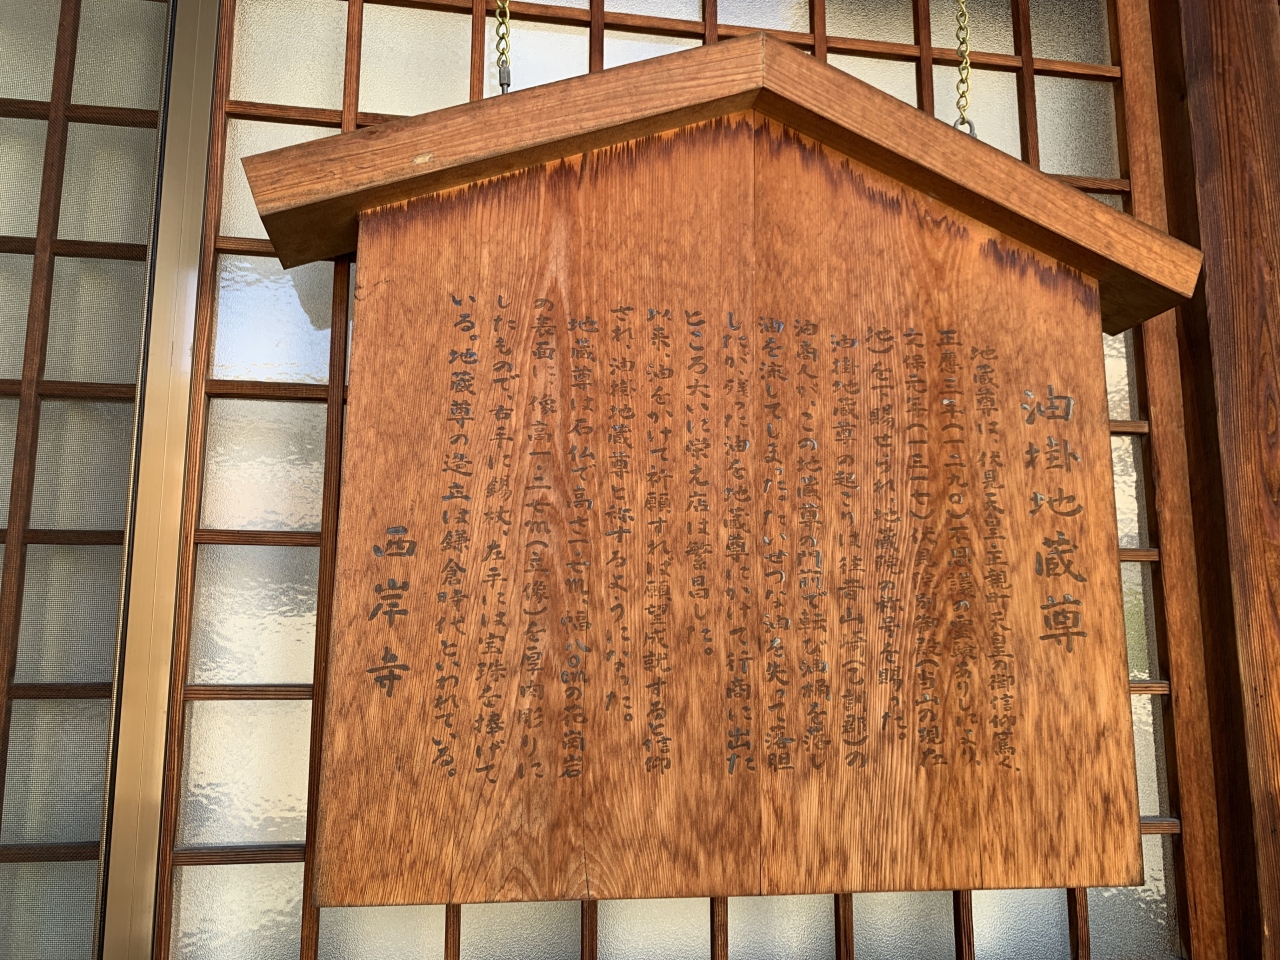 油掛地蔵尊
地蔵尊は、伏見天皇正親町天皇の御信仰篤く、
正應三年(一二九〇)不思議の霊験ありしにより、
文保元年(一三一七)伏見院別御殿(当山の現在
地)を下賜せられ、地蔵院の称号を賜った。
油掛地蔵尊の起こりは往昔山崎(乙訓郡)の
油商人が、この地蔵尊の門前で転び油桶を落し
油を流してしまった。たいせつな油を失って落胆
したが、残った油を地蔵尊にかけて行商に出た
ところ大いに栄え店は繁昌した。
以来、油をかけて祈願すれば願望成就すると信仰
され、油掛地蔵尊と称するようになった。
地蔵尊は石仏で高さ一・七m、幅八〇cmの花崗岩
の表面に、像高一・二七m(立像)を厚肉彫りに
したもので、右手に錫杖、左手には宝珠を捧げて
いる。地蔵尊の造立は鎌倉時代といわれている。
西岸寺